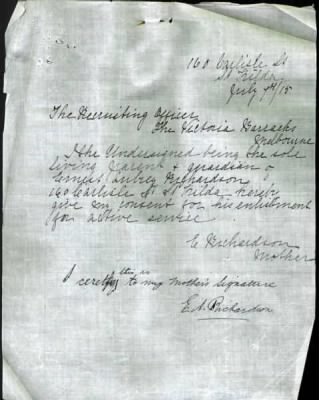 160 Carlisle St
St Kilda
July 7th/15
The Recruiting Officer
The Victoria Barracks
Melbourne
I the Undersigned being the sole
living Parent & guardian of
Ernest Aubrey Richardson
160 Carlisle St St Kilda hereby
give my consent for his enlistment
for active service
C Richardson
Mother
I certify this is to my Mother's Signature
E.A. Richardson